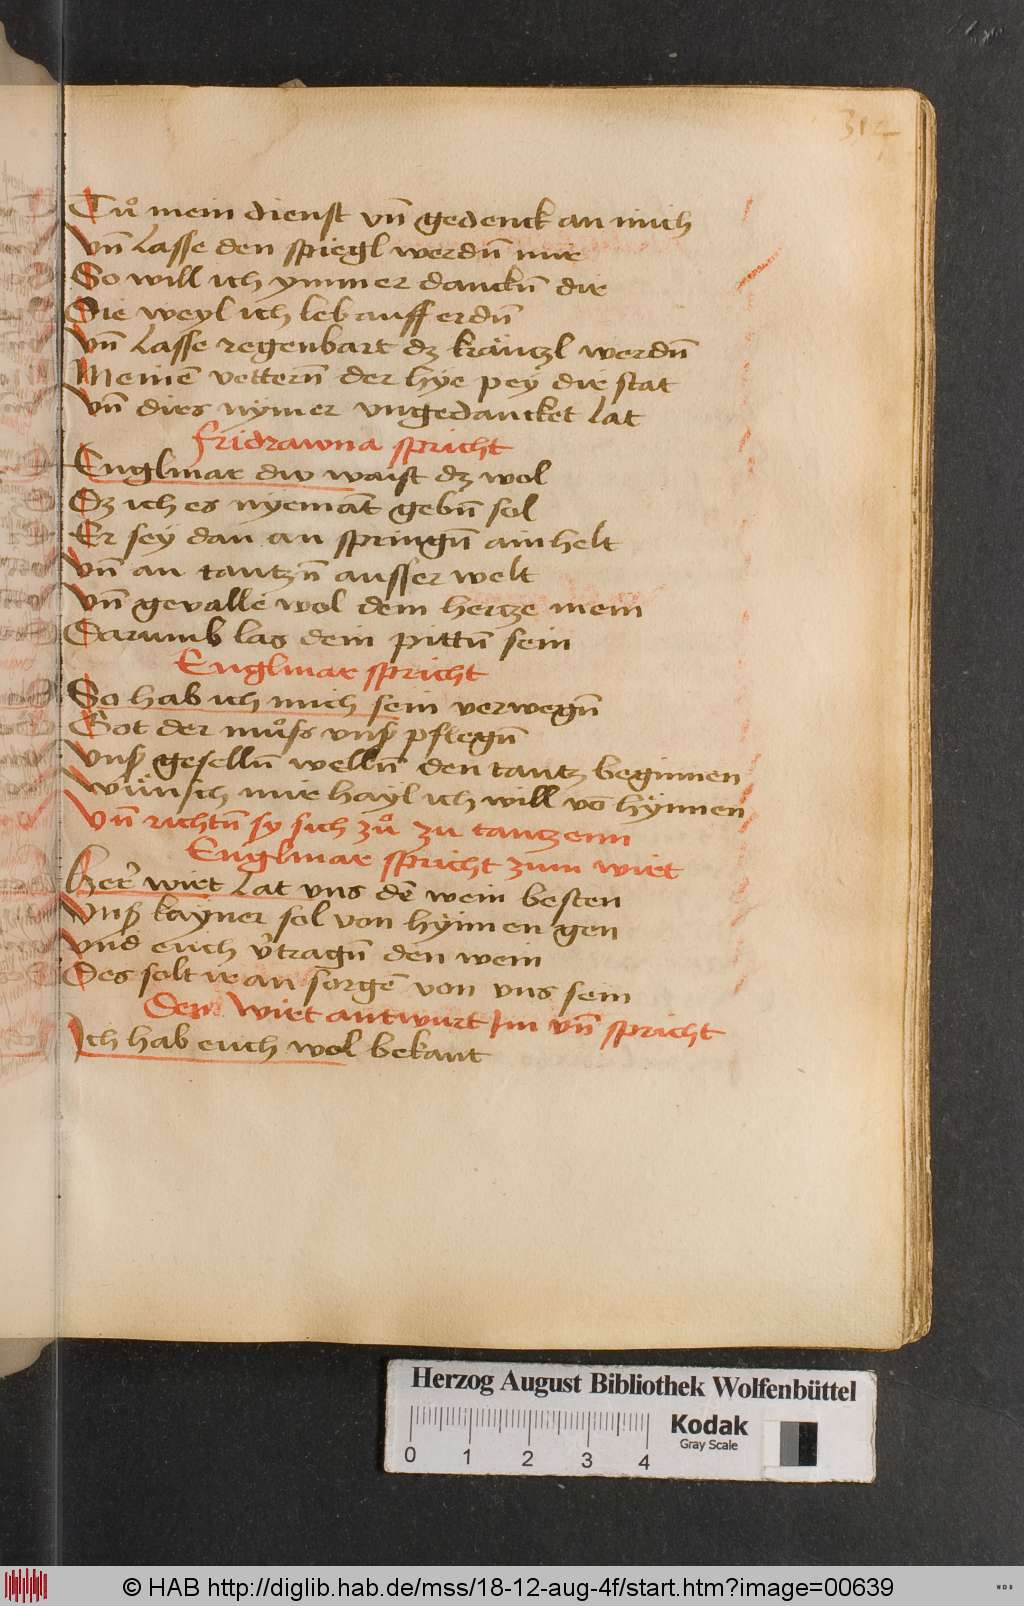 314
Tuͦ mein dienst vn̄ gedenck an mich
vn̄ lasse den spiegl werdn̄ mir
So will ich ymmer danckn̄ dir
Die weyl ich leb auff erdn̄
vn̄ lasse regenbart dʒ kräntzl werdn̄
Meinē vettern̄ der hye pey dir stat
vn̄ dirs nymer vngedancket lat
fridrawna spricht
Englmar diw waist dʒ wol
Dʒ ich es nyemāt gebn̄ sol
Er sey dan an springn̄ ain helt
vn̄ an tantzn̄ ausser welt
vn̄ gevalle wol dem hertze mein
Darumb las dein pittn̄ sein
Englmar spricht
So hab ich mich sein verwegn̄
Got der muͦss vnsʼ pflegn̄
vnsʼ geselln̄ welln̄ den tantz beginnen
wünsch mir hayl ich will vō hÿnnen
vn̄ richtn̄ sy sich zuͦ zu tantzenn
Englmar spricht zum wirt
Herʼ wirt lat vns dē wein besten
vnsʼ kayner sol von hÿnnen gen
vnd euch vʼtragn̄ den wein
Des solt ir an sorgē von vns sein
Der wirt antwurt Im vn̄ spricht
Ich hab euch wol bekant
Herzog August Bibliothek Wolfenbüttel
Kodak
Gray Scale
0 1 2 3 4
© HAB http://diglib.hab.de/mss/18-12-aug-4f/start.htm?image=00639